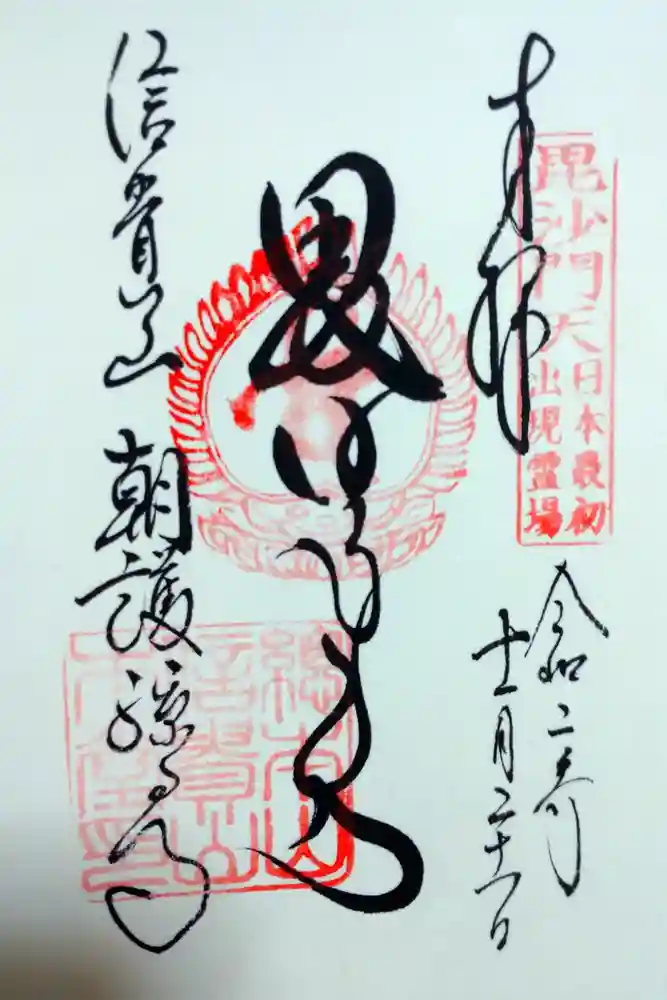 奉拝
毘沙門天
日本最初
出現霊場
令和二年
十一月二十一日
信貴山 朝護孫子寺
總本山
信貴山